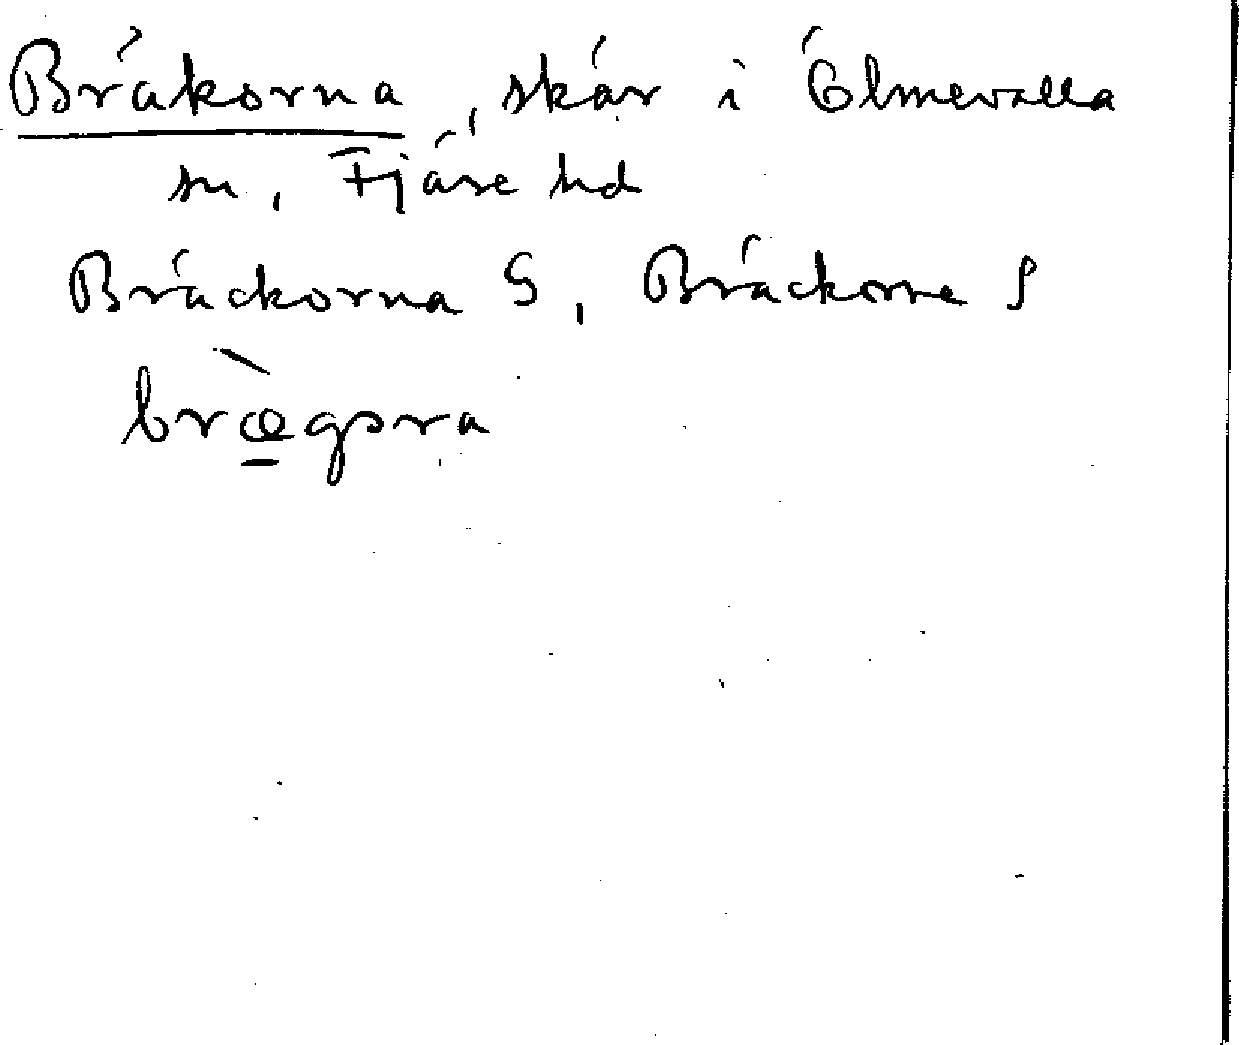 Bräkorna, skär i Ölmevalla
sn, Fjäre hd
Bräckorna S, Bräckorne S
brægora